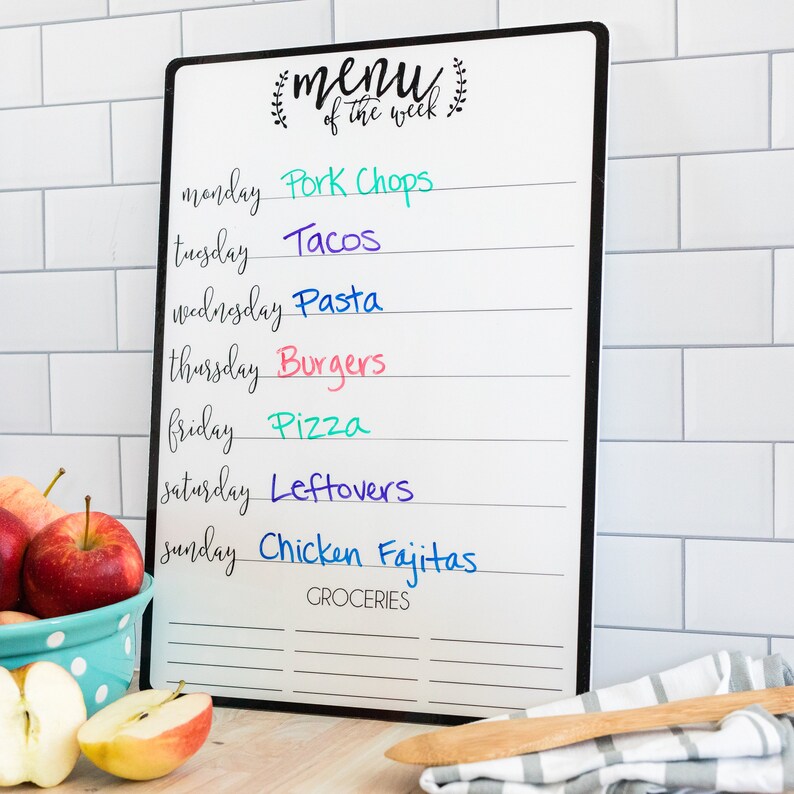 menu
of the week
monday Pork Chops
tuesday Tacos
wednesday Pasta
thursday Burgers
friday Pizza
saturday Leftovers
sunday Chicken Fajitas
GROCERIES